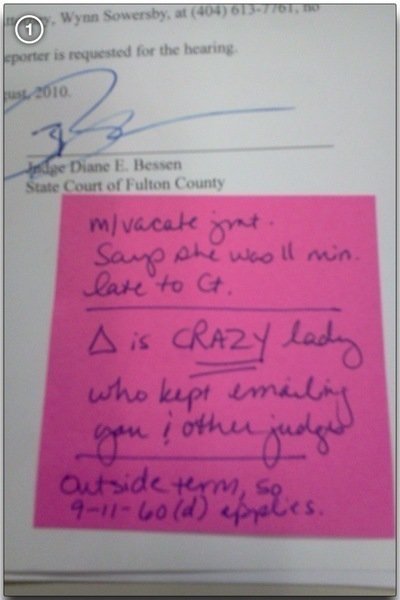 1
Wynn Sowersby, at (404) 613-7761, no
eporter is requested for the hearing.
gust, 2010.
Judge Diane E. Bessen
State Court of Fulton County
m/vacate jmt.
Says she was 11 min.
late to Ct.
Δ is CRAZY lady
who kept emailing
you & other judges
Outside term, so
9-11-60(d) applies.